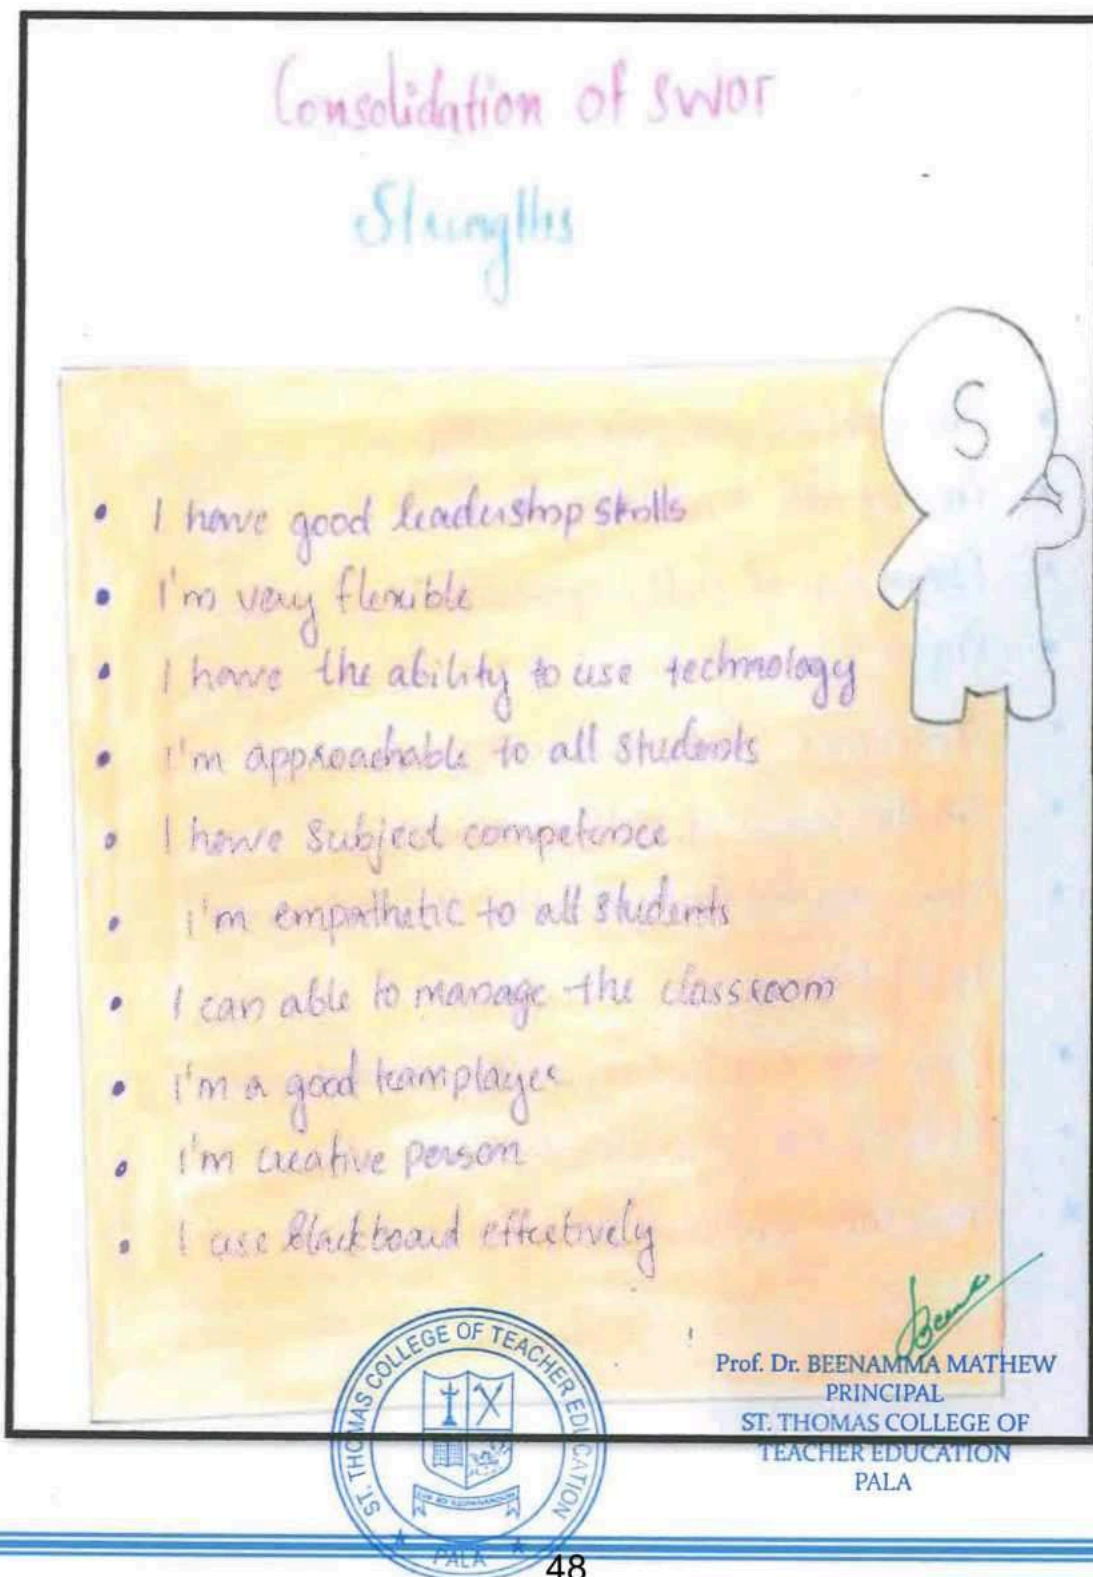 Consolidation of SWOT
Strengths
S
• I have good leadership skills
• I'm very flexible
• I have the ability to use technology
• I'm approachable to all students
• I have subject competence
• I'm empathetic to all students
• I can able to manage the classroom
• I'm a good teamplayer
• I'm creative person
• I use Blackboard effectively
Prof. Dr. BEENAMMA MATHEW
PRINCIPAL
ST. THOMAS COLLEGE OF
TEACHER EDUCATION
PALA
ST. THOMAS COLLEGE OF TEACHER EDUCATION
PALA
48